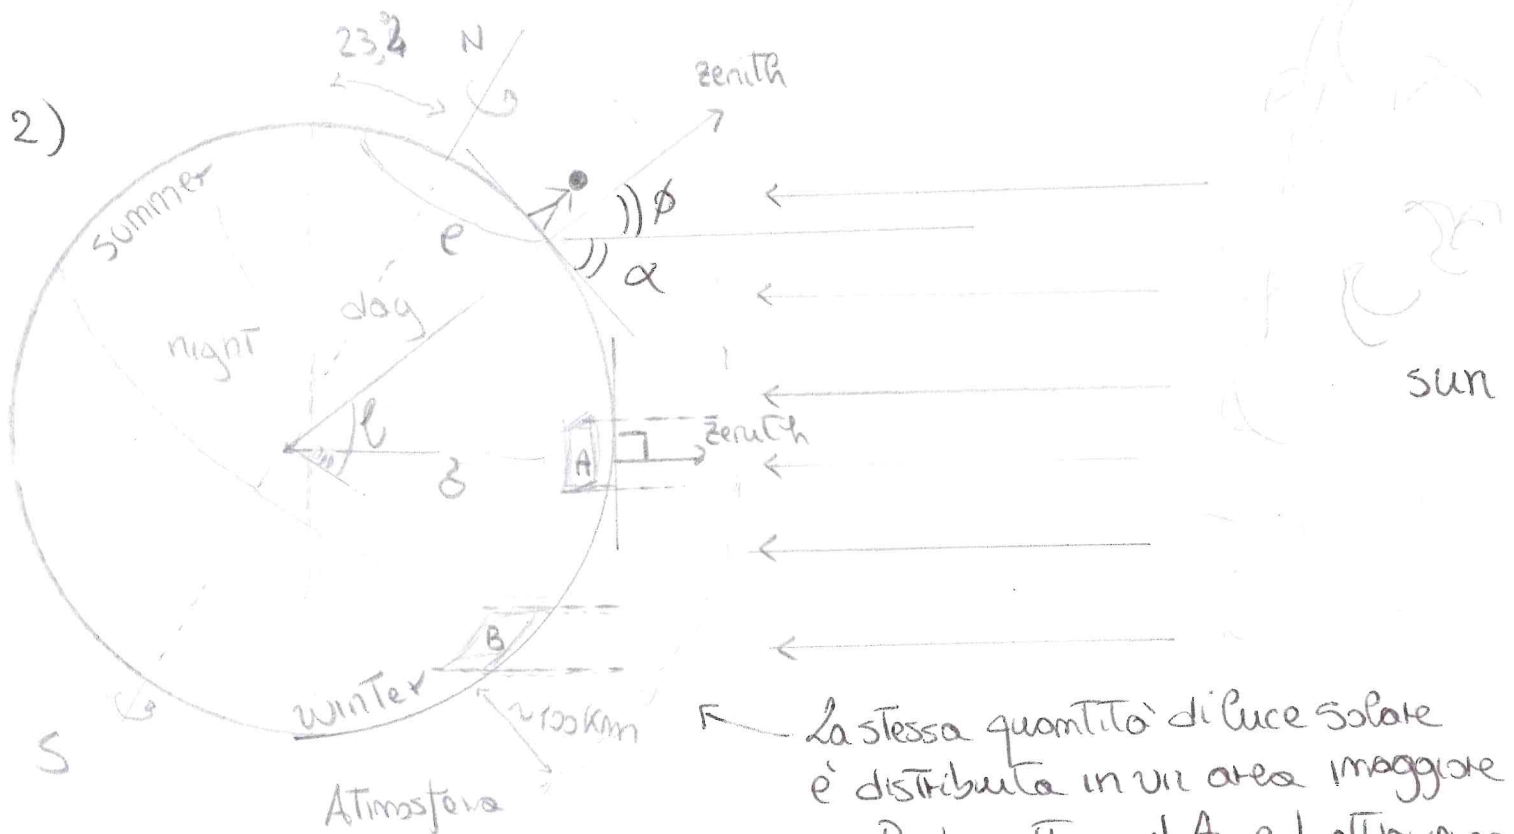 2)
23,4
N
zenith
summer
e
φ
α
day
night
sun
l
δ
A
zenith
B
winter
~100Km
S
Atmosfera
La stessa quantità di luce solare
è distribuita in un area maggiore